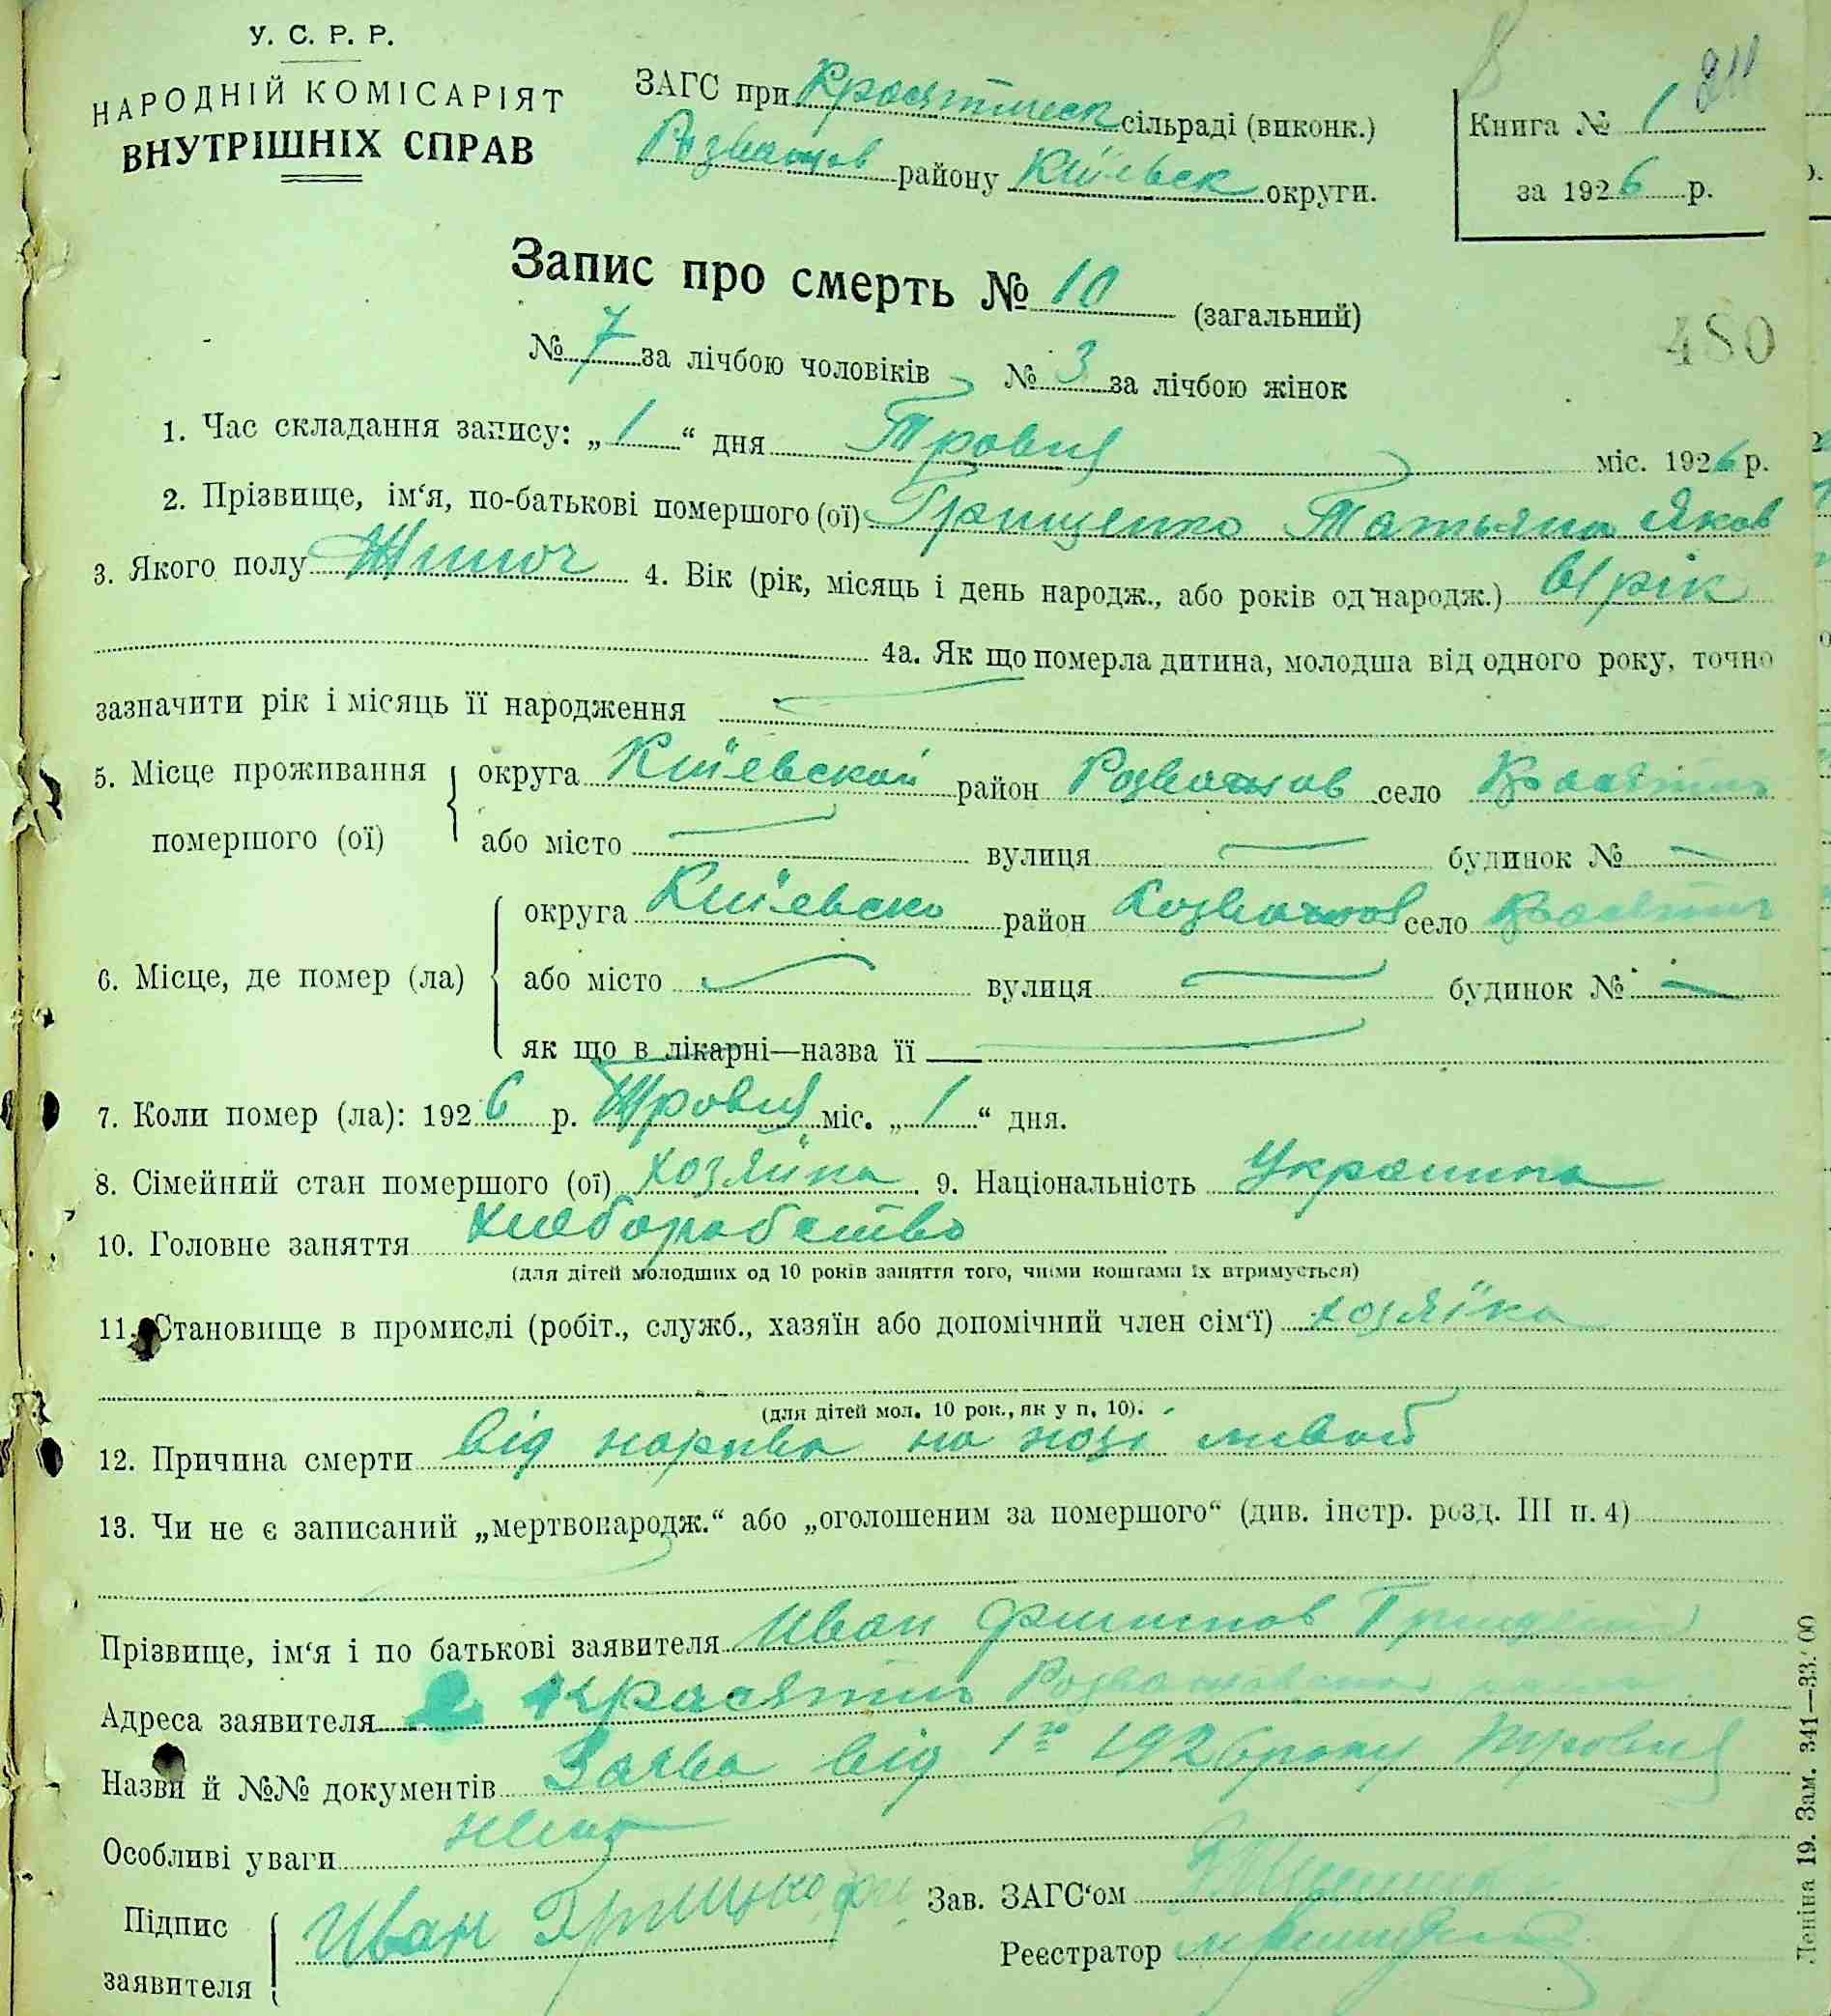 У. С. Р. Р.
НАРОДНІЙ КОМІСАРІЯТ
ВНУТРІШНІХ СПРАВ
ЗАГС при Красятицск сільраді (виконк.)
Розважов району Київськ округи.
Книга № 1
211
за 1926 р.
Запис про смерть № 10 (загальний)
№ 7 за лічбою чоловіків № 3 за лічбою жінок
480
1. Час складання запису: „1“ дня Тровня міс. 1926 р.
2. Прізвище, ім‘я, по-батькові помершого (ої) Грищенко Татьяна Яков
3. Якого полу Жиноч 4. Вік (рік, місяць і день народж., або років од народж.) рік
4а. Як що померла дитина, молодша від одного року, точно
зазначити рік і місяць її народження
5. Місце проживання помершого (ої) округа Київской район Розважов село Красятич
або місто вулиця будинок №
6. Місце, де помер (ла) округа Київско район Розважов село Красятич
або місто вулиця будинок №
як що в лікарні—назва її
7. Коли помер (ла): 1926 р. Тровня міс. „1“ дня.
8. Сімейний стан помершого (ої) хозяйка 9. Національність Украинка
10. Головне заняття хлеборобство
(для дітей молодших од 10 років заняття того, чиїми коштами їх втримується)
11. Становище в промислі (робіт., служб., хазяїн або допомічний член сім‘ї) хозяїка
(для дітей мол. 10 рок., як у п. 10).
12. Причина смерти від нарива на нозі ливой
13. Чи не є записаний „мертвонародж.“ або „оголошеним за помершого“ (див. інстр. розд. III п. 4)
Прізвище, ім‘я і по батькові заявителя Иван Филипов Грищенко
Адреса заявителя с Красятич
Назви й №№ документів Заява від 1го 1926 року Тровня
Особливі уваги нема
Підпис заявителя Иван Грищко
Зав. ЗАГС‘ом
Реєстратор
Леніна 19. Зам. 341—33.000